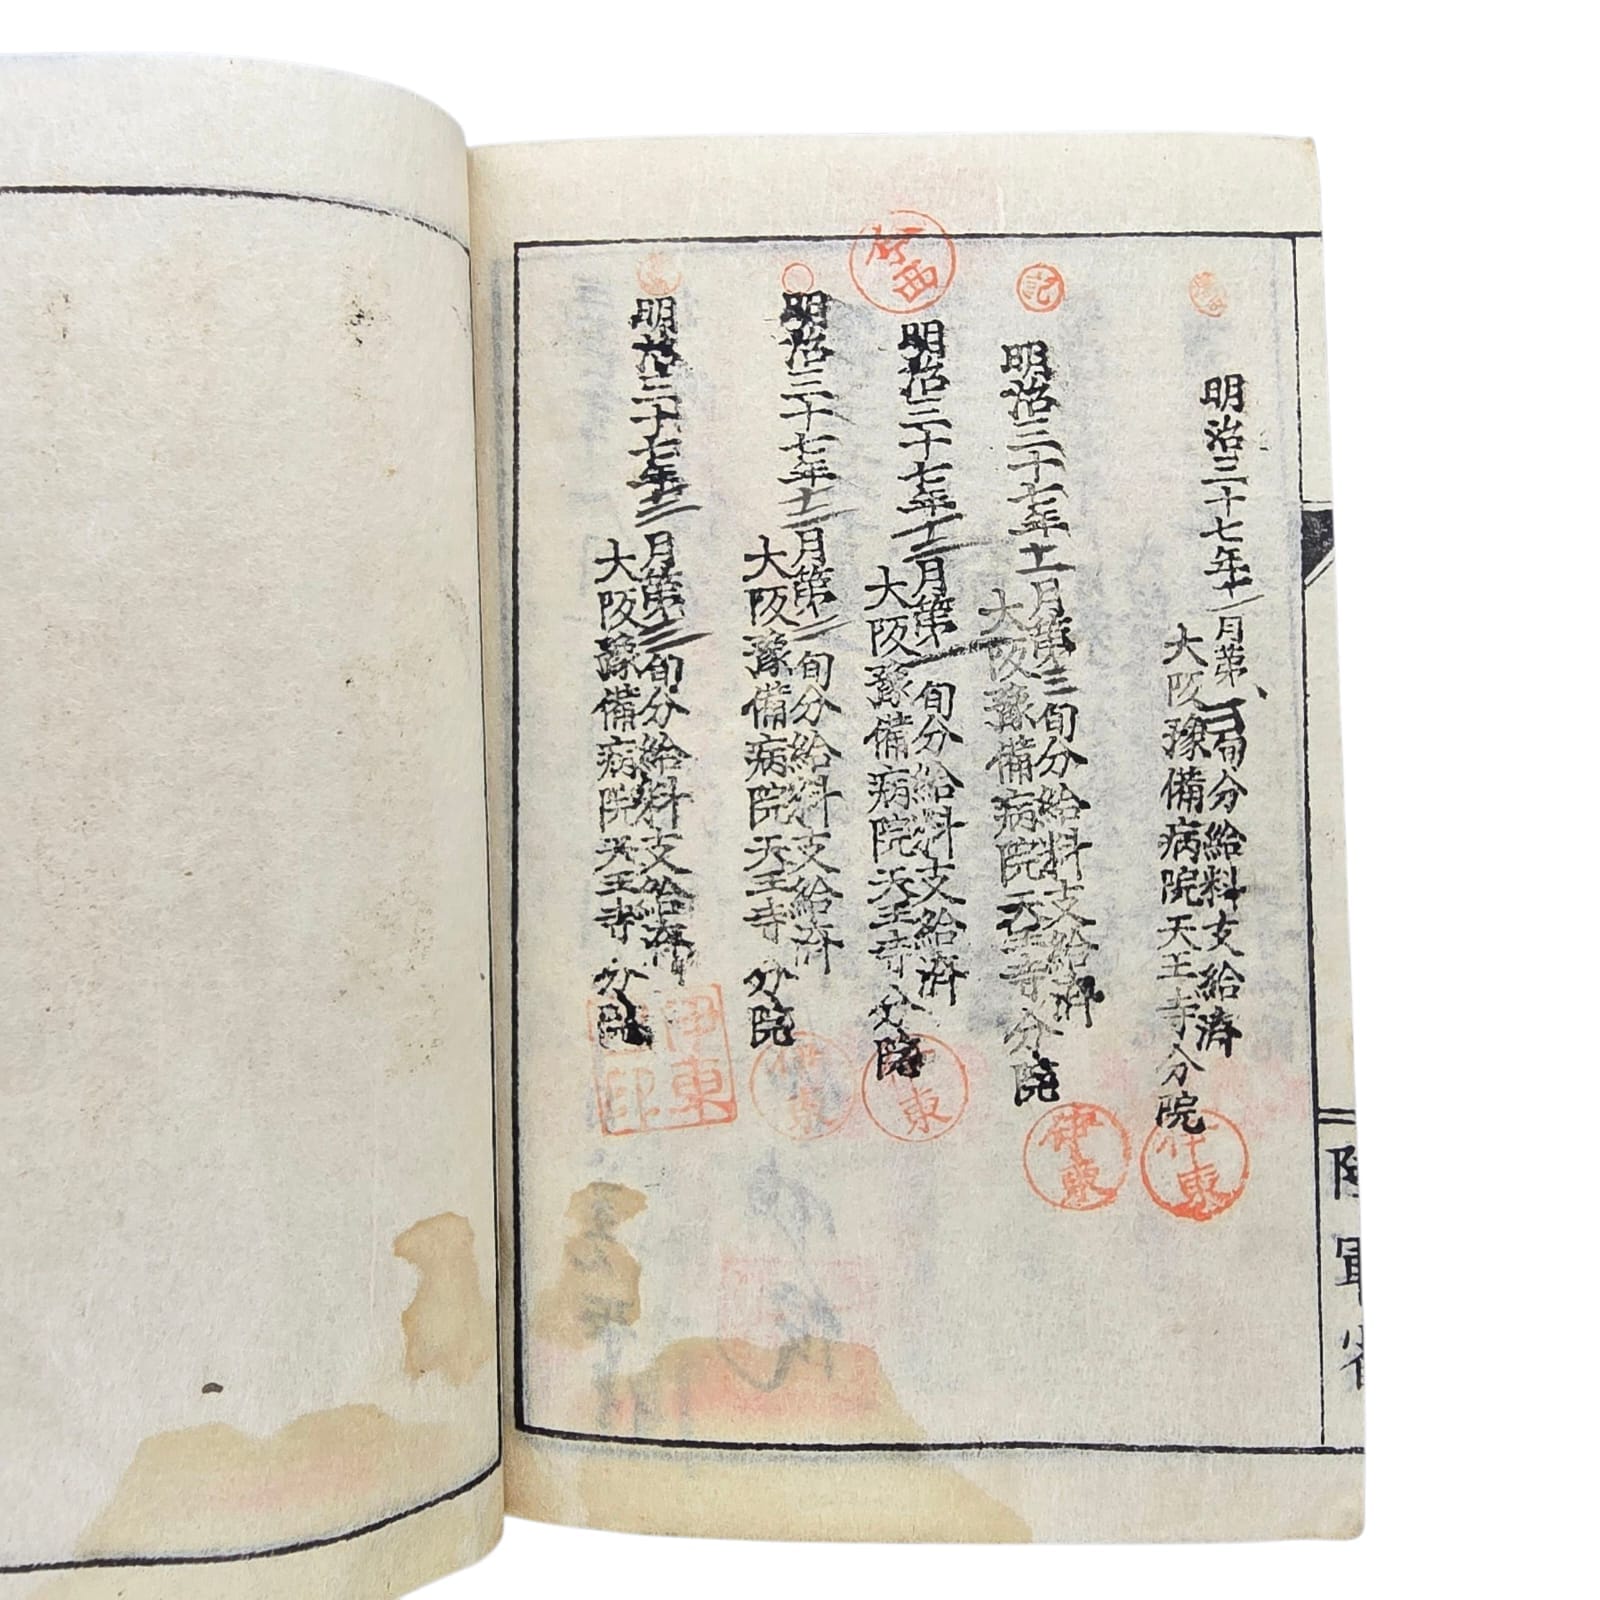 陸軍省
明治三十七年十一月第二旬分給料支給済
大阪豫備病院天王寺分院
伊東
記
明治三十七年十一月第三旬分給料支給済
大阪豫備病院天王寺分院
伊東
明治三十七年十二月第一旬分給料支給済
大阪豫備病院天王寺分院
伊東
明治三十七年十二月第二旬分給料支給済
大阪豫備病院天王寺分院
伊東
明治三十七年十二月第三旬分給料支給済
大阪豫備病院天王寺分院
伊東